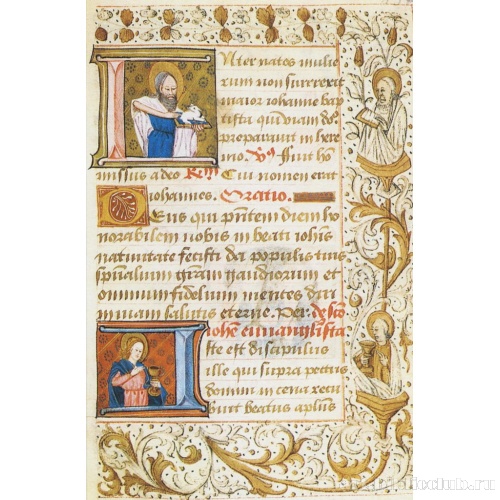 Inter natos mulie
rum non surrexit
maior iohanne bap
tista qui viam do
preparauit in here
mo. Vs Fuit hō
missus a deo Rm Cui nomen erat
iohannes. Oratio.
Deus qui pñtem diem ho
norabilem nobis in beati iohis
natiuitate fecisti da populis tuis
spũalium grãm gaudiorum et
omnium fidelium mentes diri
in uiam salutis eterne. Per. de sco
iohe euuangelista
Iste est discipulus
ille qui supra pectus
domini in cena recu
buit beatus aplus